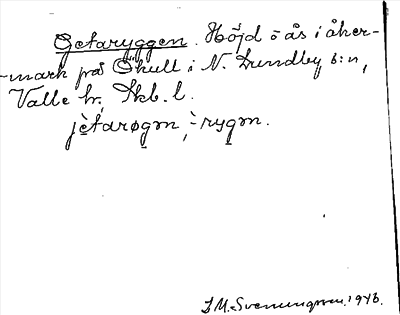 Getaryggen. Höjd o ås i åker-
-mark på Ökull i N. Lundby s:n,
Valle hd, Skb. l.
jètarøgən, -̀rygən.
S.M. Svenungsson. 1946.